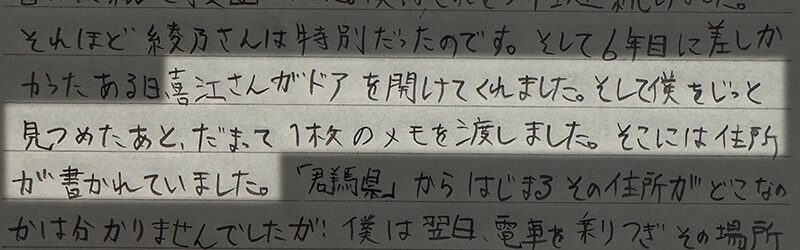 それほど綾乃さんは特別だったのです。そして6年目に差しか
かったある日、喜江さんがドアを開けてくれました。そして僕をじっと
見つめたあと、だまって1枚のメモを渡しました。そこには住所
が書かれていました。「群馬県」からはじまるその住所がどこなの
かは分かりませんでしたが、僕は翌日、電車を乗りつぎその場所